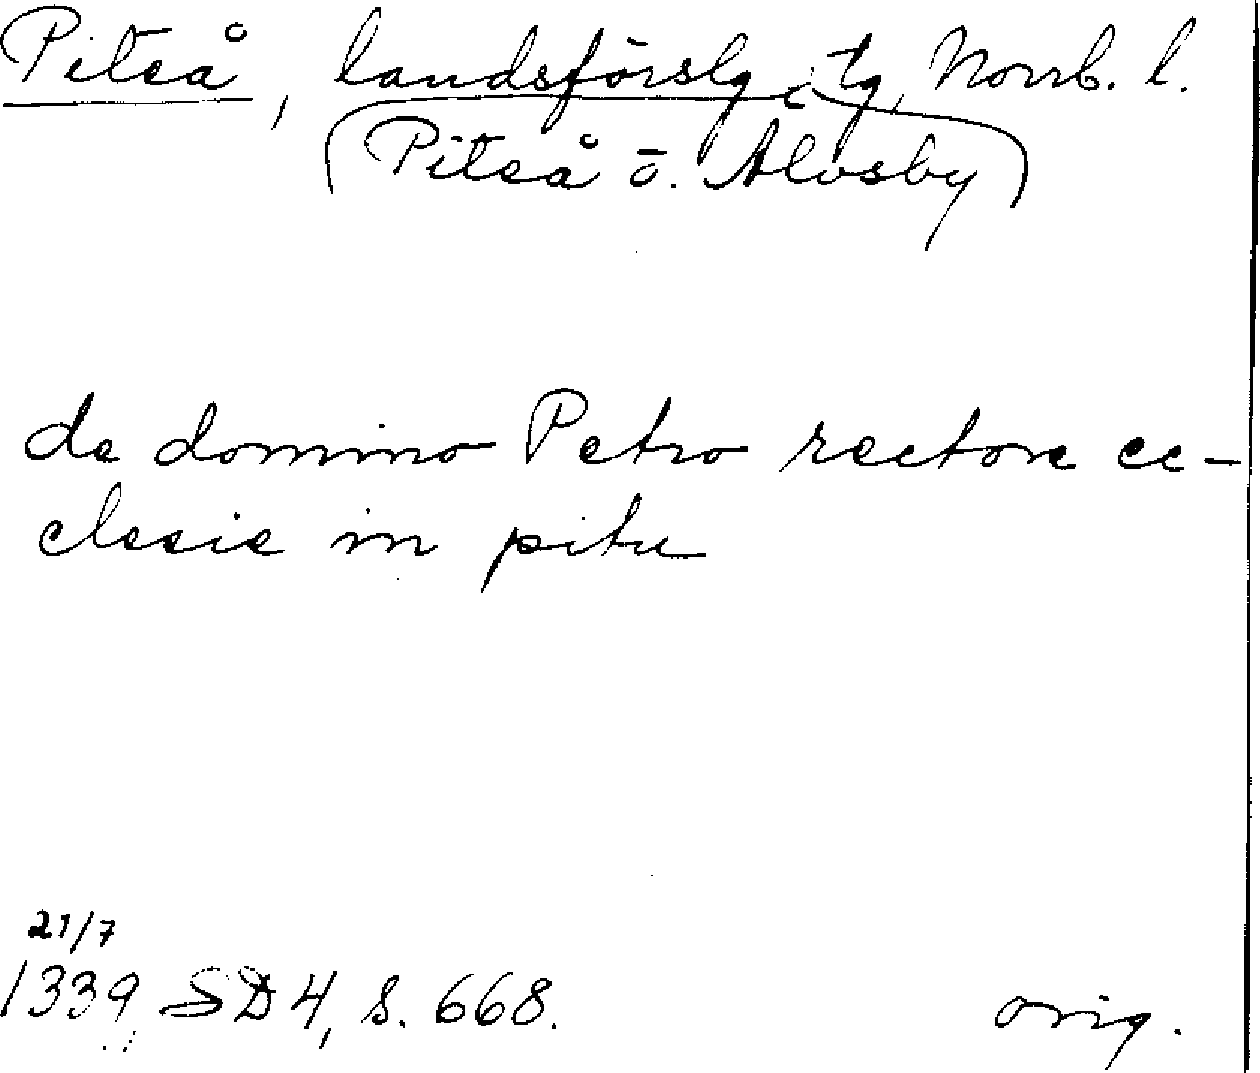 Piteå, landsförslg, tg, Norrb. l.
(Piteå o. Älvsby)
de domino Petro rectore ec-
clesie in pitu
21/7
1339, SD 4, s. 668. orig.